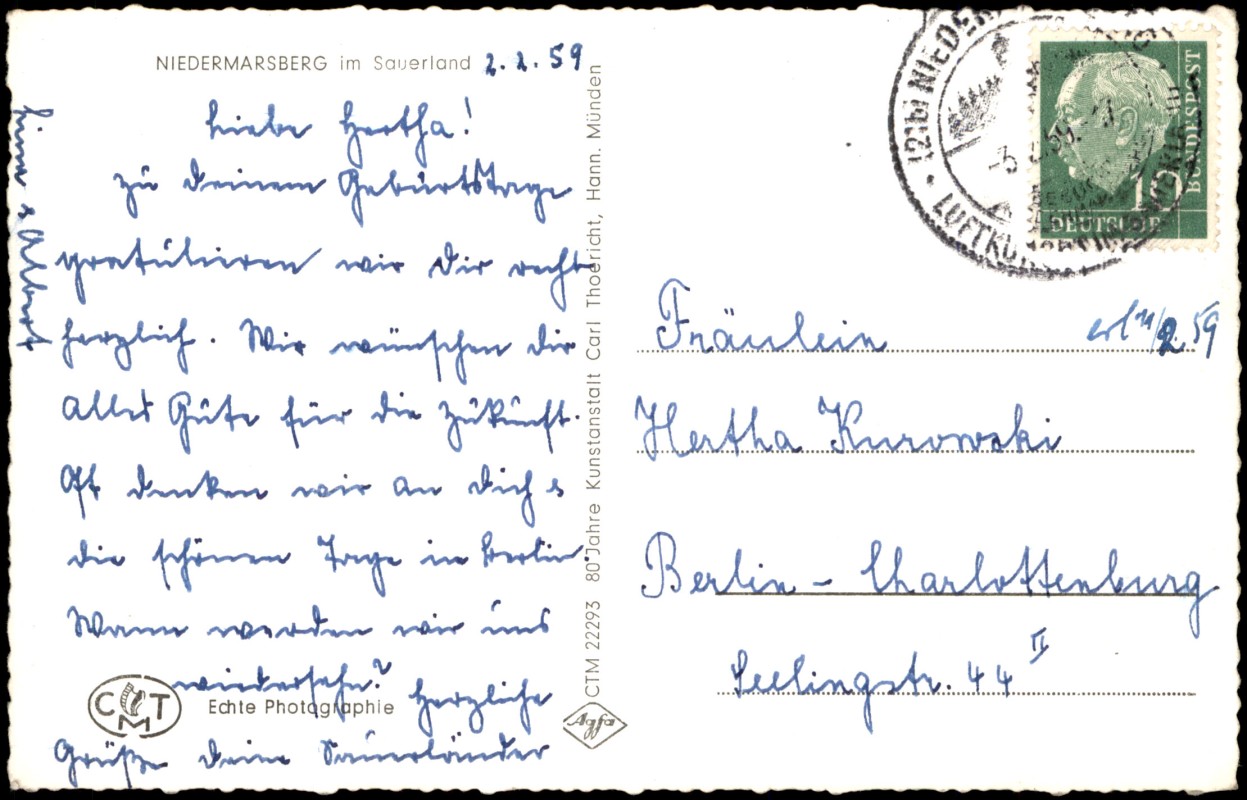 NIEDERMARSBERG im Sauerland 2.2.59
Liebe Hertha!
Zu Deinem Geburtstage
gratulieren wir Dir recht
herzlich. Wir wünschen Dir
Alles Gute für die Zukunft.
Oft denken wir an Dich &
die schönen Tage in Berlin.
Wann werden wir uns
wiedersehn? Herzliche
Grüße Deine Sauerländer
& Albert
CTM
Echte Photographie
CTM 22293 80 Jahre Kunstanstalt Carl Thoericht, Hann. Münden
Agfa
(21b) NIEDER
-3. 2.59
LUFTKURORT IM
DEUTSCHE
BUNDESPOST
10
erl 11/2.59
Fräulein
Hertha Kurowski
Berlin - Charlottenburg
Seelingstr. 44 II